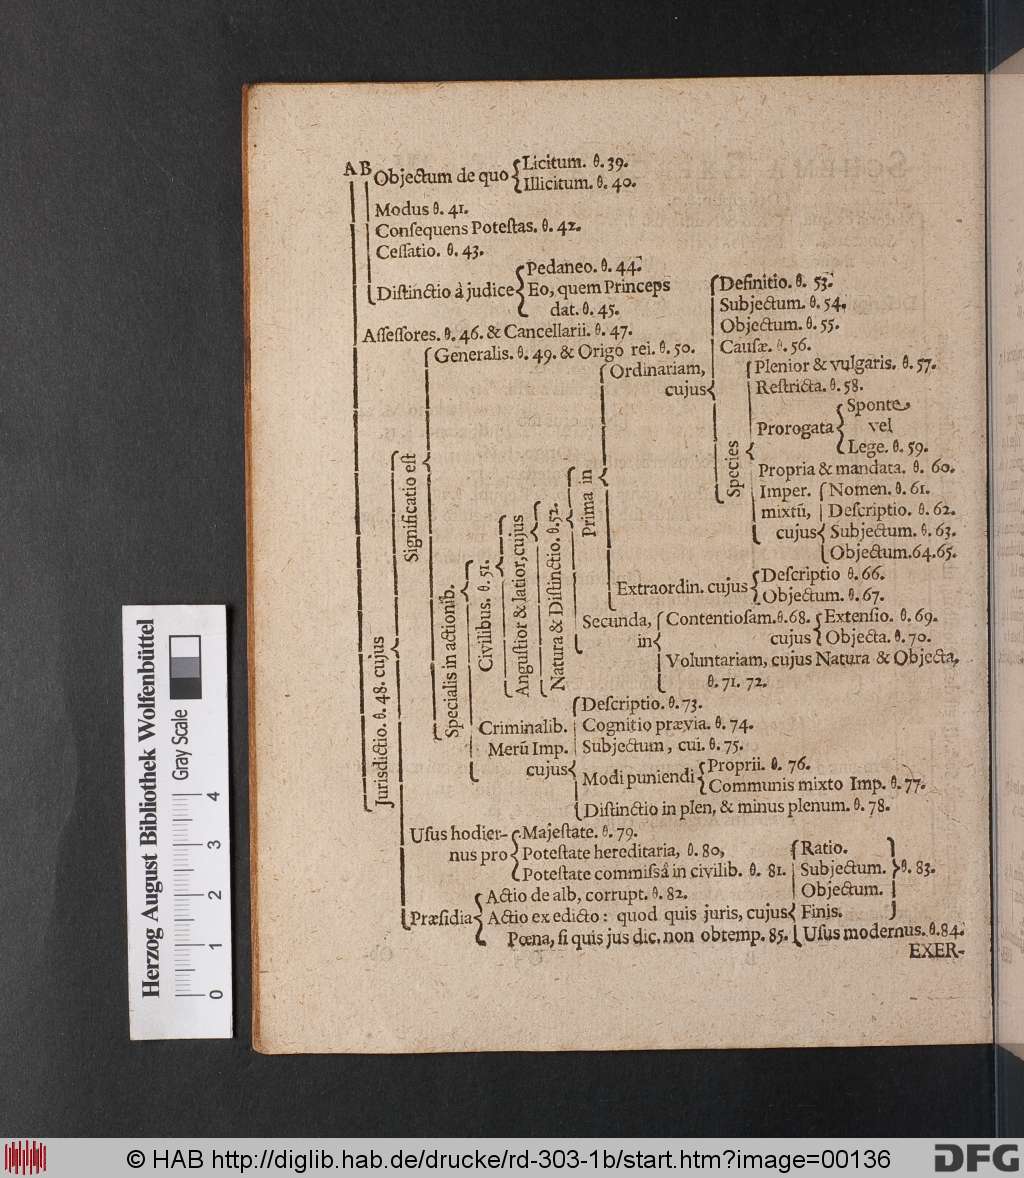 A B
Objectum de quo
Licitum. θ. 39.
Illicitum. θ. 40.
Modus θ. 41.
Conſequens Poteſtas. θ. 42.
Ceſſatio. θ. 43.
Diſtinctio à judice
Pedaneo. θ. 44.
Eo, quem Princeps
dat. θ. 45.
Aſſeſſores. θ. 46. & Cancellarii. θ. 47.
Jurisdictio. θ. 48. cujus
Significatio eſt
Generalis. θ. 49. & Origo rei. θ. 50.
Specialis in actionib.
Civilibus. θ. 51.
Anguſtior & latior, cujus
Natura & Diſtinctio. θ. 52.
Prima in
Ordinariam,
cujus
Definitio. θ. 53.
Subjectum. θ. 54.
Objectum. θ. 55.
Cauſæ. θ. 56.
Species
Plenior & vulgaris. θ. 57.
Reſtricta. θ. 58.
Prorogata
Sponte
vel
Lege. θ. 59.
Propria & mandata. θ. 60.
Imper.
mixtū,
cujus
Nomen. θ. 61.
Deſcriptio. θ. 62.
Subjectum. θ. 63.
Objectum. 64. 65.
Extraordin. cujus
Deſcriptio θ. 66.
Objectum. θ. 67.
Secunda,
in
Contentioſam. θ. 68.
cujus
Extenſio. θ. 69.
Objecta. θ. 70.
Voluntariam, cujus Natura & Objecta,
θ. 71. 72.
Criminalib.
Merū Imp.
cujus
Deſcriptio. θ. 73.
Cognitio prævia. θ. 74.
Subjectum, cui. θ. 75.
Modi puniendi
Proprii. θ. 76.
Communis mixto Imp. θ. 77.
Diſtinctio in plen, & minus plenum. θ. 78.
Uſus hodier-
nus pro
Majeſtate. θ. 79.
Poteſtate hereditaria, θ. 80,
Poteſtate commiſsâ in civilib. θ. 81.
Præſidia
Actio de alb, corrupt. θ. 82.
Actio ex edicto: quod quis juris, cujus
Ratio.
Subjectum.
Objectum.
Finis.
θ. 83.
Uſus modernus. θ. 84.
Pœna, ſi quis jus dic. non obtemp. 85.
EXER-
Herzog August Bibliothek Wolfenbüttel
Gray Scale
0 1 2 3 4
© HAB http://diglib.hab.de/drucke/rd-303-1b/start.htm?image=00136
DFG